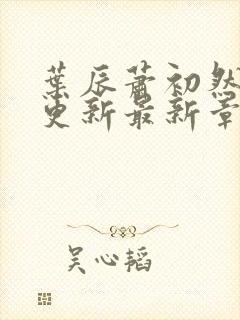 葉辰蕭初然
更新最新章
吴心韬